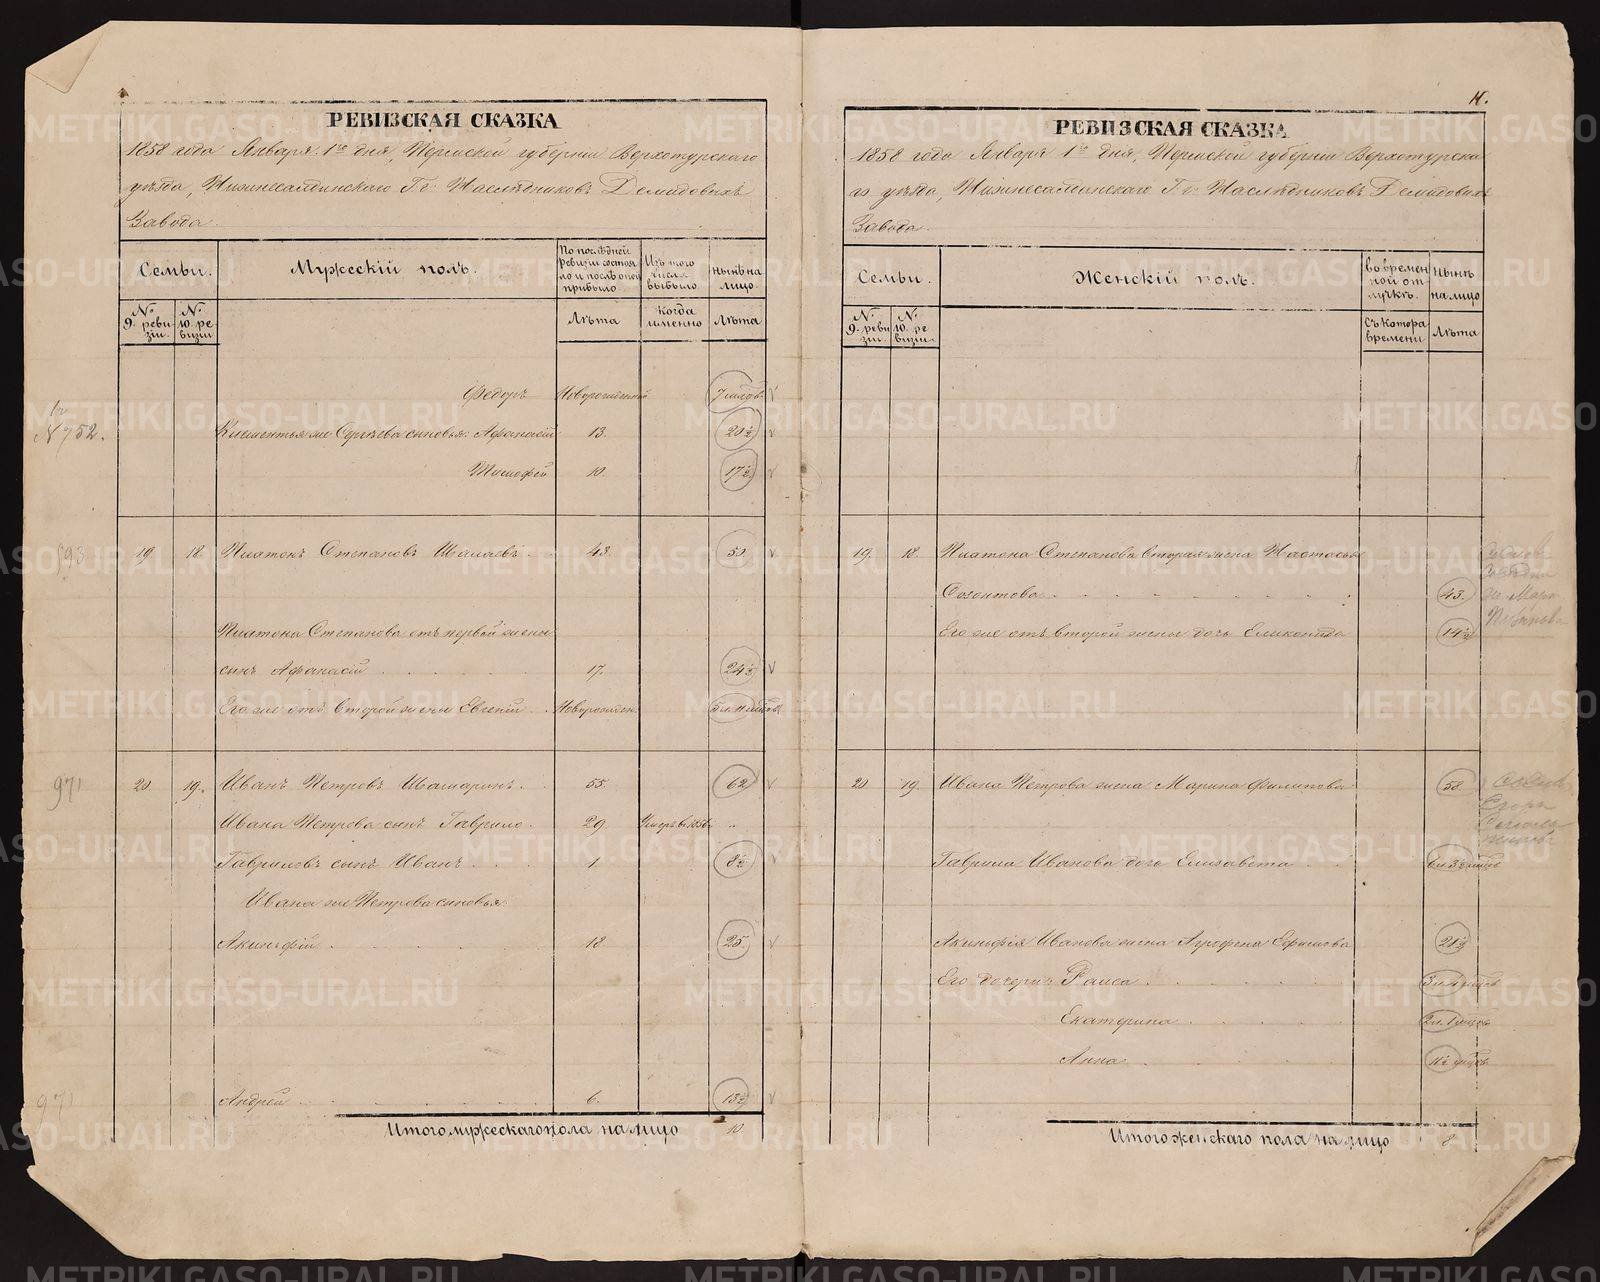 РЕВИЗСКАЯ СКАЗКА
1858 года Января 1го дня, Пермской губернии Верхотурскаго
уѣзда, Нижнесалдинскаго Г.г. Наслѣдниковъ Демидовыхъ
Завода.
Семьи.
Мужескій полъ.
По послѣдней ревизіи состояло и послѣ оной прибыло
Изъ того числа выбыло
Нынѣ на лицо.
№ 9. ревизіи.
№ 10. ревизіи
Лѣта
Когда именно
Лѣта
Федоръ Новорожденный
№ 752.
Сергѣева сыновья: Афанасій 13. 20½
Тимофей 10. 17½
593 19 18. Платонъ Степановъ 43. 50
Платона Степанова отъ первой жены
сынъ Афанасій 17. 24½
Его же отъ второй жены Евгеній Новорожден.
971 20. 19. Иванъ Петровъ 55. 62
Ивана Петрова сынъ Гаврило. 29. Умеръ въ 1856. ..
Гавриловъ сынъ Иванъ 1. 8½
Ивана же Петрова сыновья
Акинфій 18 25.
971 Андрей 6. 13½
Итого мужескаго пола на лицо 10
11.
РЕВИЗСКАЯ СКАЗКА
1858 года Января 1го дня, Пермской губерніи Верхотурска
го уѣзда, Нижнесалдинскаго Г.г. Наслѣдниковъ Демидовыхъ
Завода.
Семьи.
Женскій полъ.
во временной отлучкѣ.
Нынѣ на лицо
№ 9. ревизіи.
№ 10. ревизіи.
Съ котора времени
Лѣта
19. 18. Платона Степанова вторая жена Настасья
43.
Его же отъ второй жены дочь Еликонида 14½
20 19. Ивана Петрова жена Марина Филипова 58.
Гаврила Иванова дочь Елизавета
Акинфія Иванова жена Агрофена Ефимова 21½
Его дочери: Раиса
Екатерина
Анна
Итого женскаго пола на лицо 8.
METRIKI.GASO-URAL.RU